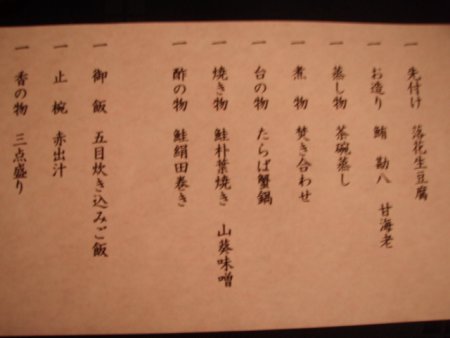 一 先付け 落花生豆腐
一 お造り 鮪 勘八 甘海老
一 蒸し物 茶碗蒸し
一 煮物 焚き合わせ
一 台の物 たらば蟹鍋
一 焼き物 鮭朴葉焼き 山葵味噌
一 酢の物 鮭絹田巻き
一 御飯 五目炊き込みご飯
一 止椀 赤出汁
一 香の物 三点盛り